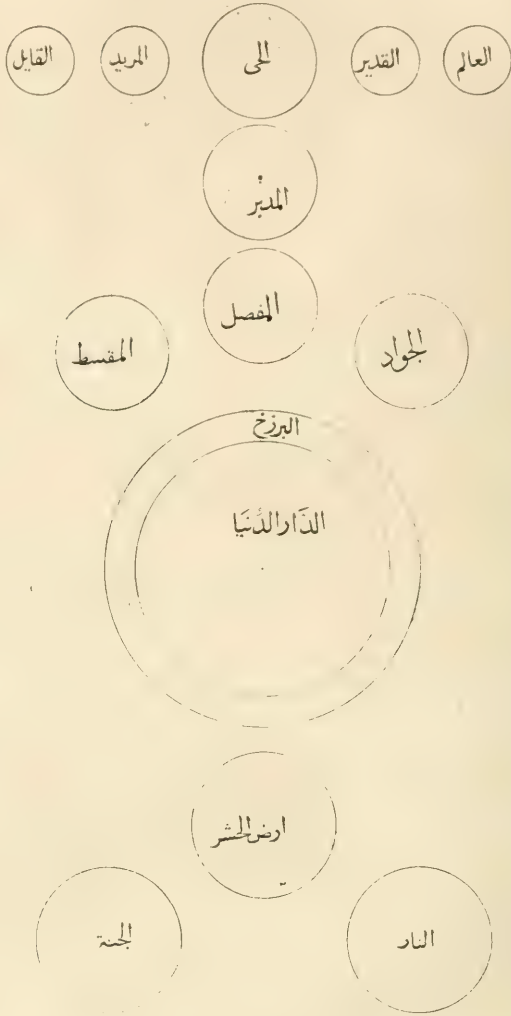 العالم القدير الحى المريد القايل
المدبر
المفصل
الجواد المقسط
البرزخ
الدَار الدُنيَا
ارض الحشر
النار الجنة